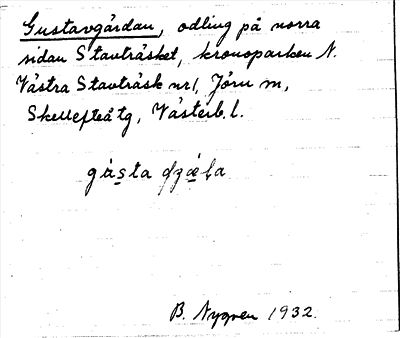 Gustavgården, odling på norra
sidan Stavträsket, kronoparken N.
Västra Stavträsk nr 1, Jörn sn,
Skellefteå tg, Västerb. l.
B. Nygren 1932.